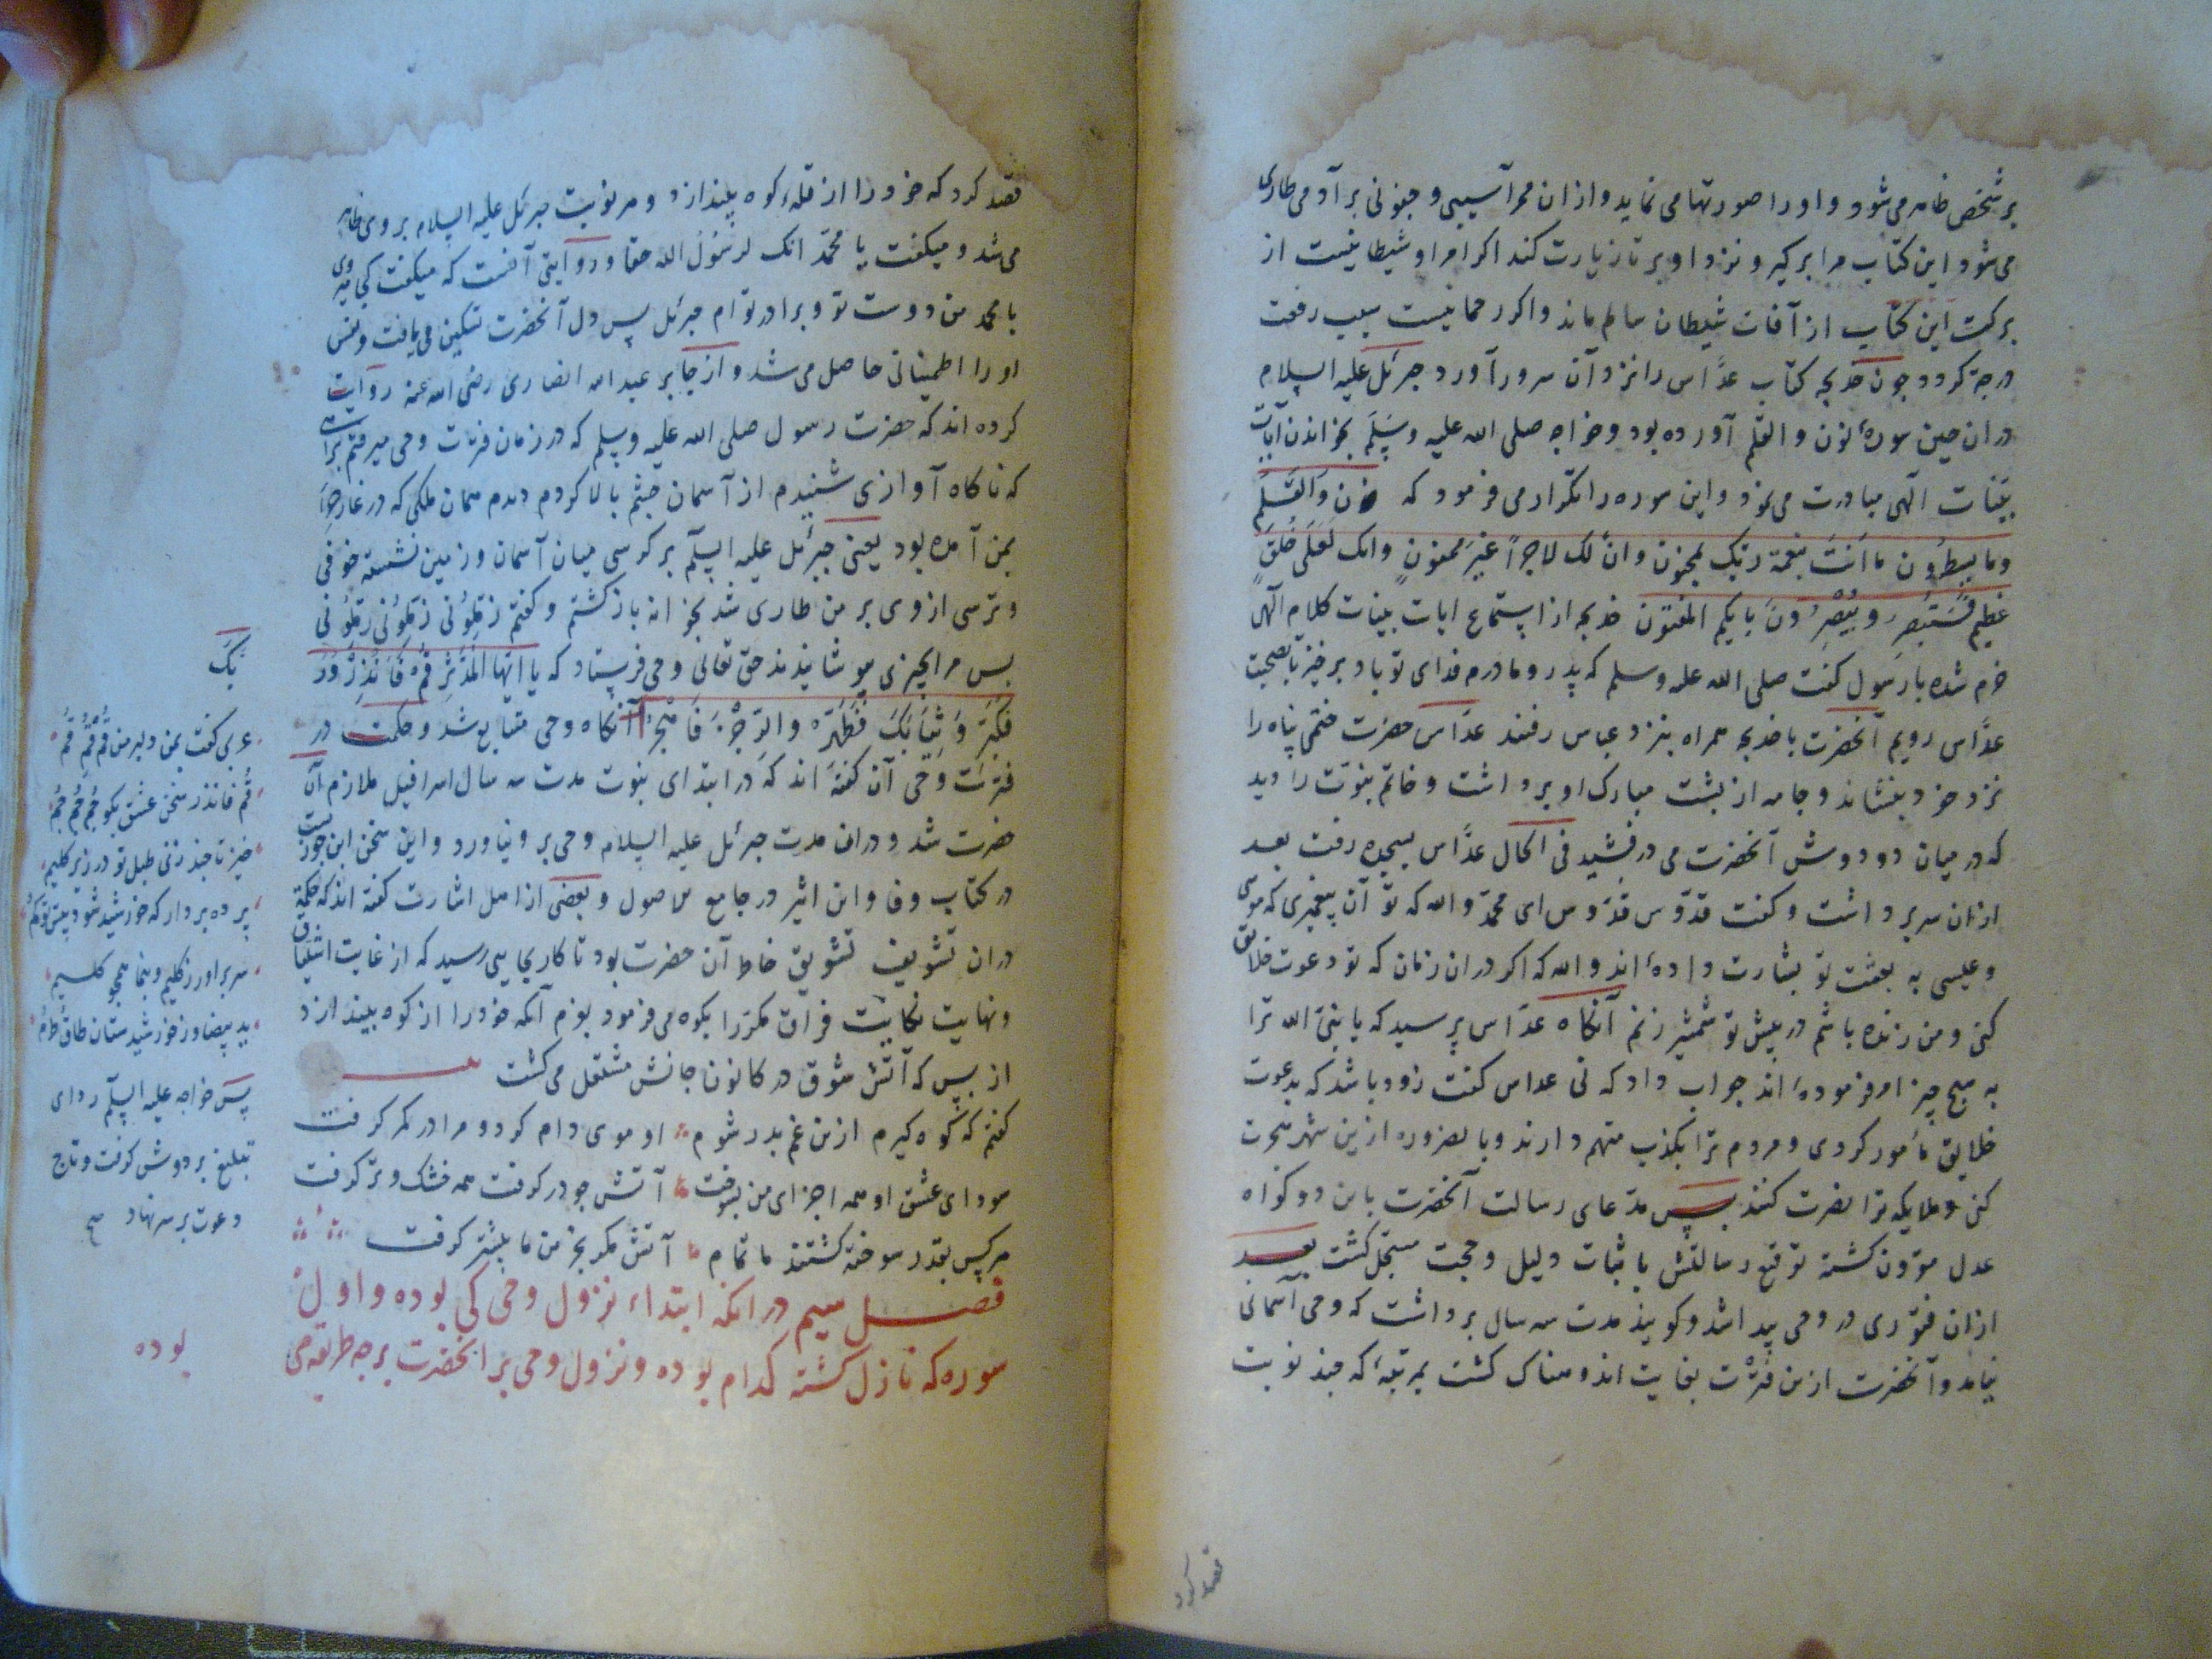 بر شخص ظاهر می شود و او را صورتها می نماید و ازان ممر آسیبی و جنونی بر آدمی طاری
می شود این کتاب مرا بر گیر و نزد او بر تا زیارت کند اگر امر او شیطانیست از
برکت این کتاب از آفات شیطان سالم ماند و اگر رحمانیست سبب رفعت
درجه گردد چون خدیجه کتاب عدّاس را نزد آن سرور آورد جبرئل علیه السلام
دران حین سورهٔ نون و القلم آورده بود و خواجه صلی الله علیه وسلم بخواندن آیات
بینات الهی مبادرت می نمود و این سوره را تکرار می فرمود که ن والقلم
وما یسطرون ما انت بنعمة ربک بمجنون وان لک لاجرا غیر ممنون وانک لعلی خلق
عظیم فستبصر ویبصرون بایکم المفتون خدیجه از استماع ایات بینات کلام الهی
خرم شده با رسول گفت صلی الله علیه وسلم که پدر و مادرم فدای تو باد برخیز تا بصحبت
عدّاس رویم آنحضرت با خدیجه همراه بنزد عباس رفتند عدّاس حضرت ختمی پناه را
نزد خود بنشاند و جامه از پشت مبارک او برداشت و خاتم نبوت را دید
که در میان دو دوش آنحضرت می درفشید فی الحال عدّاس بسجده رفت بعد
ازان سر برداشت و گفت قدّوس قدّوس ای محمد والله که تو آن پیغمبری که موسی
و عیسی به بعثت تو بشارت داده اند والله که اگر دران زمان که تو دعوت خلایق
کنی و من زنده باشم در پیش تو شمشیر زنم آنگاه عدّاس پرسید که یا نبیّ الله ترا
به هیچ چیز امر فرموده اند جواب داد که نی عداس گفت زود باشد که بدعوت
خلایق مأمور گردی و مردم ترا بکذب متهم دارند و بالضروره ازین شهر هجرت
کنی و ملایکه ترا نصرت کنند پس مدّعای رسالت آنحضرت باین دو گواه
عدل مقرون گشته توقیع رسالتش باثبات دلیل و حجت مسجّل گشت بعد
ازان فتوری در وحی پیدا شد و گویند مدت سه سال برداشت که وحی آسمانی
نیامد و آنحضرت ازین فترت بغایت اندوهناک گشت بمرتبهٔ که چند نوبت
قصد کرد
قصد کرد که خود را از قلهٔ کوه بیندازد و هر نوبت جبرئل علیه السلام بر وی ظاهر
می شد و میگفت یا محمد انک لرسول الله حقا و روایتی آنست که میگفت
یا محمد من دوست تو و برادر توام جبرئل پس دل آنحضرت تسکین می یافت و نفس
او را اطمینانی حاصل می شد و از جابر عبد الله انصاری رضی الله عنه روایت
کرده اند که حضرت رسول صلی الله علیه وسلم که در زمان فترت وحی میرفتم براهی
که ناگاه آوازی شنیدم از آسمان چشم بالا کردم دیدم همان ملکی که در غار حرا
بمن آمده بود یعنی جبرئل علیه السلم بر کرسی میان آسمان و زمین نشسته خوفی
و ترسی از وی بر من طاری شد بخانه باز گشتم و گفتم زملونی زملونی زملونی
پس مرا بچیزی پوشانیدند حق تعالی وحی فرستاد که یا ایها المدثر قم فانذر ور
بک
فکبر وثیابک فطهر والرجز فاهجر آنگاه وحی متتابع شد و حکمت در
فترت وحی آن گفته اند که در ابتدای نبوت مدت سه سال اسرافیل ملازم آن
حضرت شد و دران مدت جبرئل علیه السلام وحی برو نیاورد و این سخن ابن جوزیست
در کتاب وفا و ابن اثیر در جامع الاصول و بعضی از اهل اشارت گفته اند که حکمة
دران تشویف تشویق خاطر آن حضرت بود تا کار بجایی رسید که از غایت اشتیاق
و نهایت نکایت فراق مکررا بکوه می فرمود بعزم آنکه خود را از کوه بیندازد
از بس که آتش شوق در کانون جانش مشتعل می گشت
گفتم که کوه گیرم ازین غم بدر شوم او موی دام کرد و مرا در کمر گرفت
سودای عشق او همه اجزای من بسوخت آتش چو در گرفت همه خشک و تر گرفت
هر کس بقدر سوخته گشتند ما تمام آتش مگر بخرمن ما بیشتر گرفت
فصل سیم در انکه ابتداء نزول وحی کی بوده و اول
سوره که نازل گشته کدام بوده و نزول وحی بر انحضرت برچه طریقه می
بوده
عربی گفت بمن دلبر من قم قم قم
قم فانذر سخن عشق بگو جم جم جم
خیز تا چند زنی طبل تو در زیر گلیم
پرده بردار که خورشید شود پیش تو گم
سر براور ز گلیم و بنما همچو کلیم
ید بیضا و ز خورشید ستان طاق طرم
پس خواجه علیه السلم ردای
تبلیغ بر دوش گرفت و تاج
دعوت بر سر نهاد صح